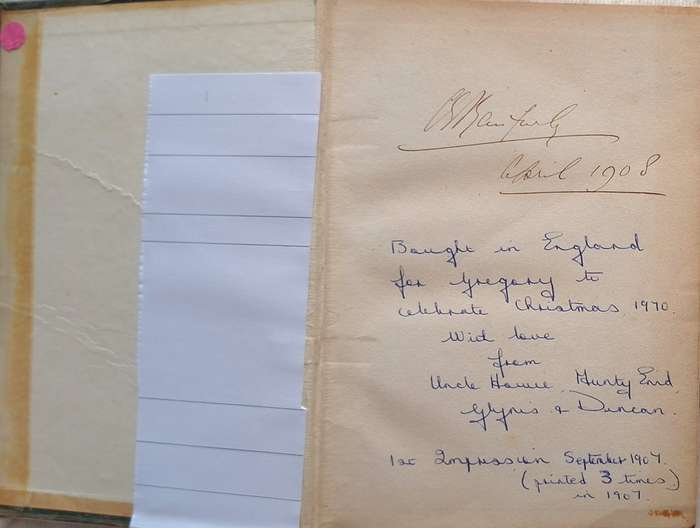 April 1908
Bought in England
for Gregory to
celebrate Christmas 1970.
With love
from
Uncle Howie, Aunty Enid
Glynis & Duncan.
1st Impression September 1907.
(printed 3 times)
in 1907.